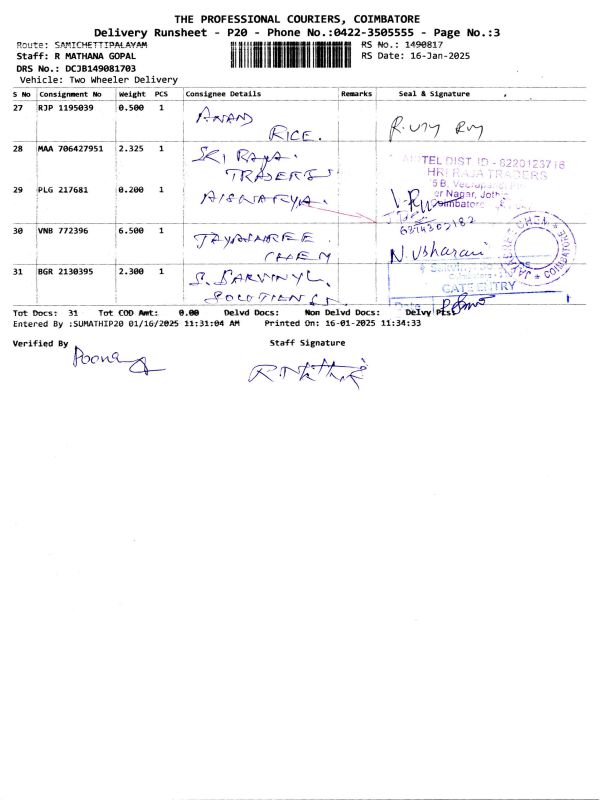 THE PROFESSIONAL COURIERS, COIMBATORE
Delivery Runsheet - P20 - Phone No.:0422-3505555 - Page No.:3
Route: SAMICHETTIPALAYAM RS No.: 1490817
Staff: R MATHANA GOPAL RS Date: 16-Jan-2025
DRS No.: DCJB149081703
Vehicle: Two Wheeler Delivery
S No Consignment No Weight PCS Consignee Details Remarks Seal & Signature
27 RJP 1195039 0.500 1 ANAND
RICE.
28 MAA 706427951 2.325 1 SRI RAJA.
TRADERS
AIRTEL DIST ID - 6220123716
HRI RAJA TRADERS
29 PLG 217681 0.200 1 AISWARYA.
er Nagar, Joth
Coimbatore
6374302182
30 VNB 772396 6.500 1 JAYASHREE
CHEM
N. Usharani
JAYASHREE CHEM COIMBATORE
31 BGR 2130395 2.300 1 S. SARVINYL
SOLUTIONS
GATE ENTRY
Date
Tot Docs: 31 Tot COD Amt: 0.00 Delvd Docs: Non Delvd Docs: Delvy Pts:
Entered By :SUMATHIP20 01/16/2025 11:31:04 AM Printed On: 16-01-2025 11:34:33
Verified By Staff Signature
Poona